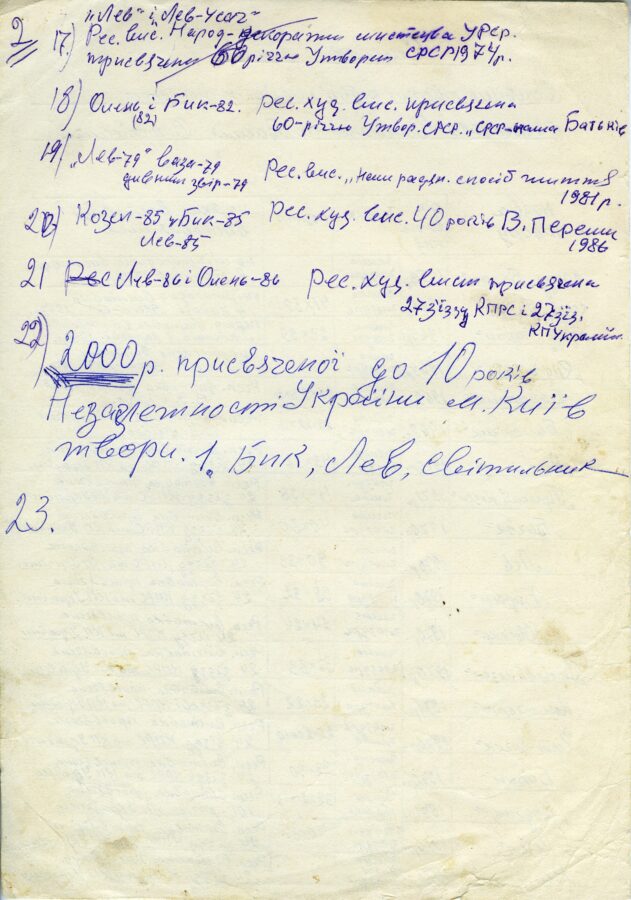 2
„Лев" і „Лев-Усач"
17) Рес. вис. Народ-декорат. мистецтва УРСР.
присвячена 50 річчю Утворин СРСР 1974 р.
18) Олень і Бик-82. Рес. худ. вис. присвячена
(82) 60-річчю Утвор. СРСР. „СРСР-наша Батьків
19) „Лев-79" ваза-79 Рес. вис. „Наш радян. спосіб життя
дивний звір-79 1981 р.
20) Козел-85 Бик-85 Рес. худ. вис. 40 років В. Перемо
Лев-85 1986
21 Рес Лев-86 і Олень-86 Рес. худ. вист присвячена
27 з'їзду КПРС і 27 з'їз.
КП України.
22) 2000 р. присвяченої до 10 років
Незалежності України м. Київ
твори. 1. Бик, Лев, Світильник
23.